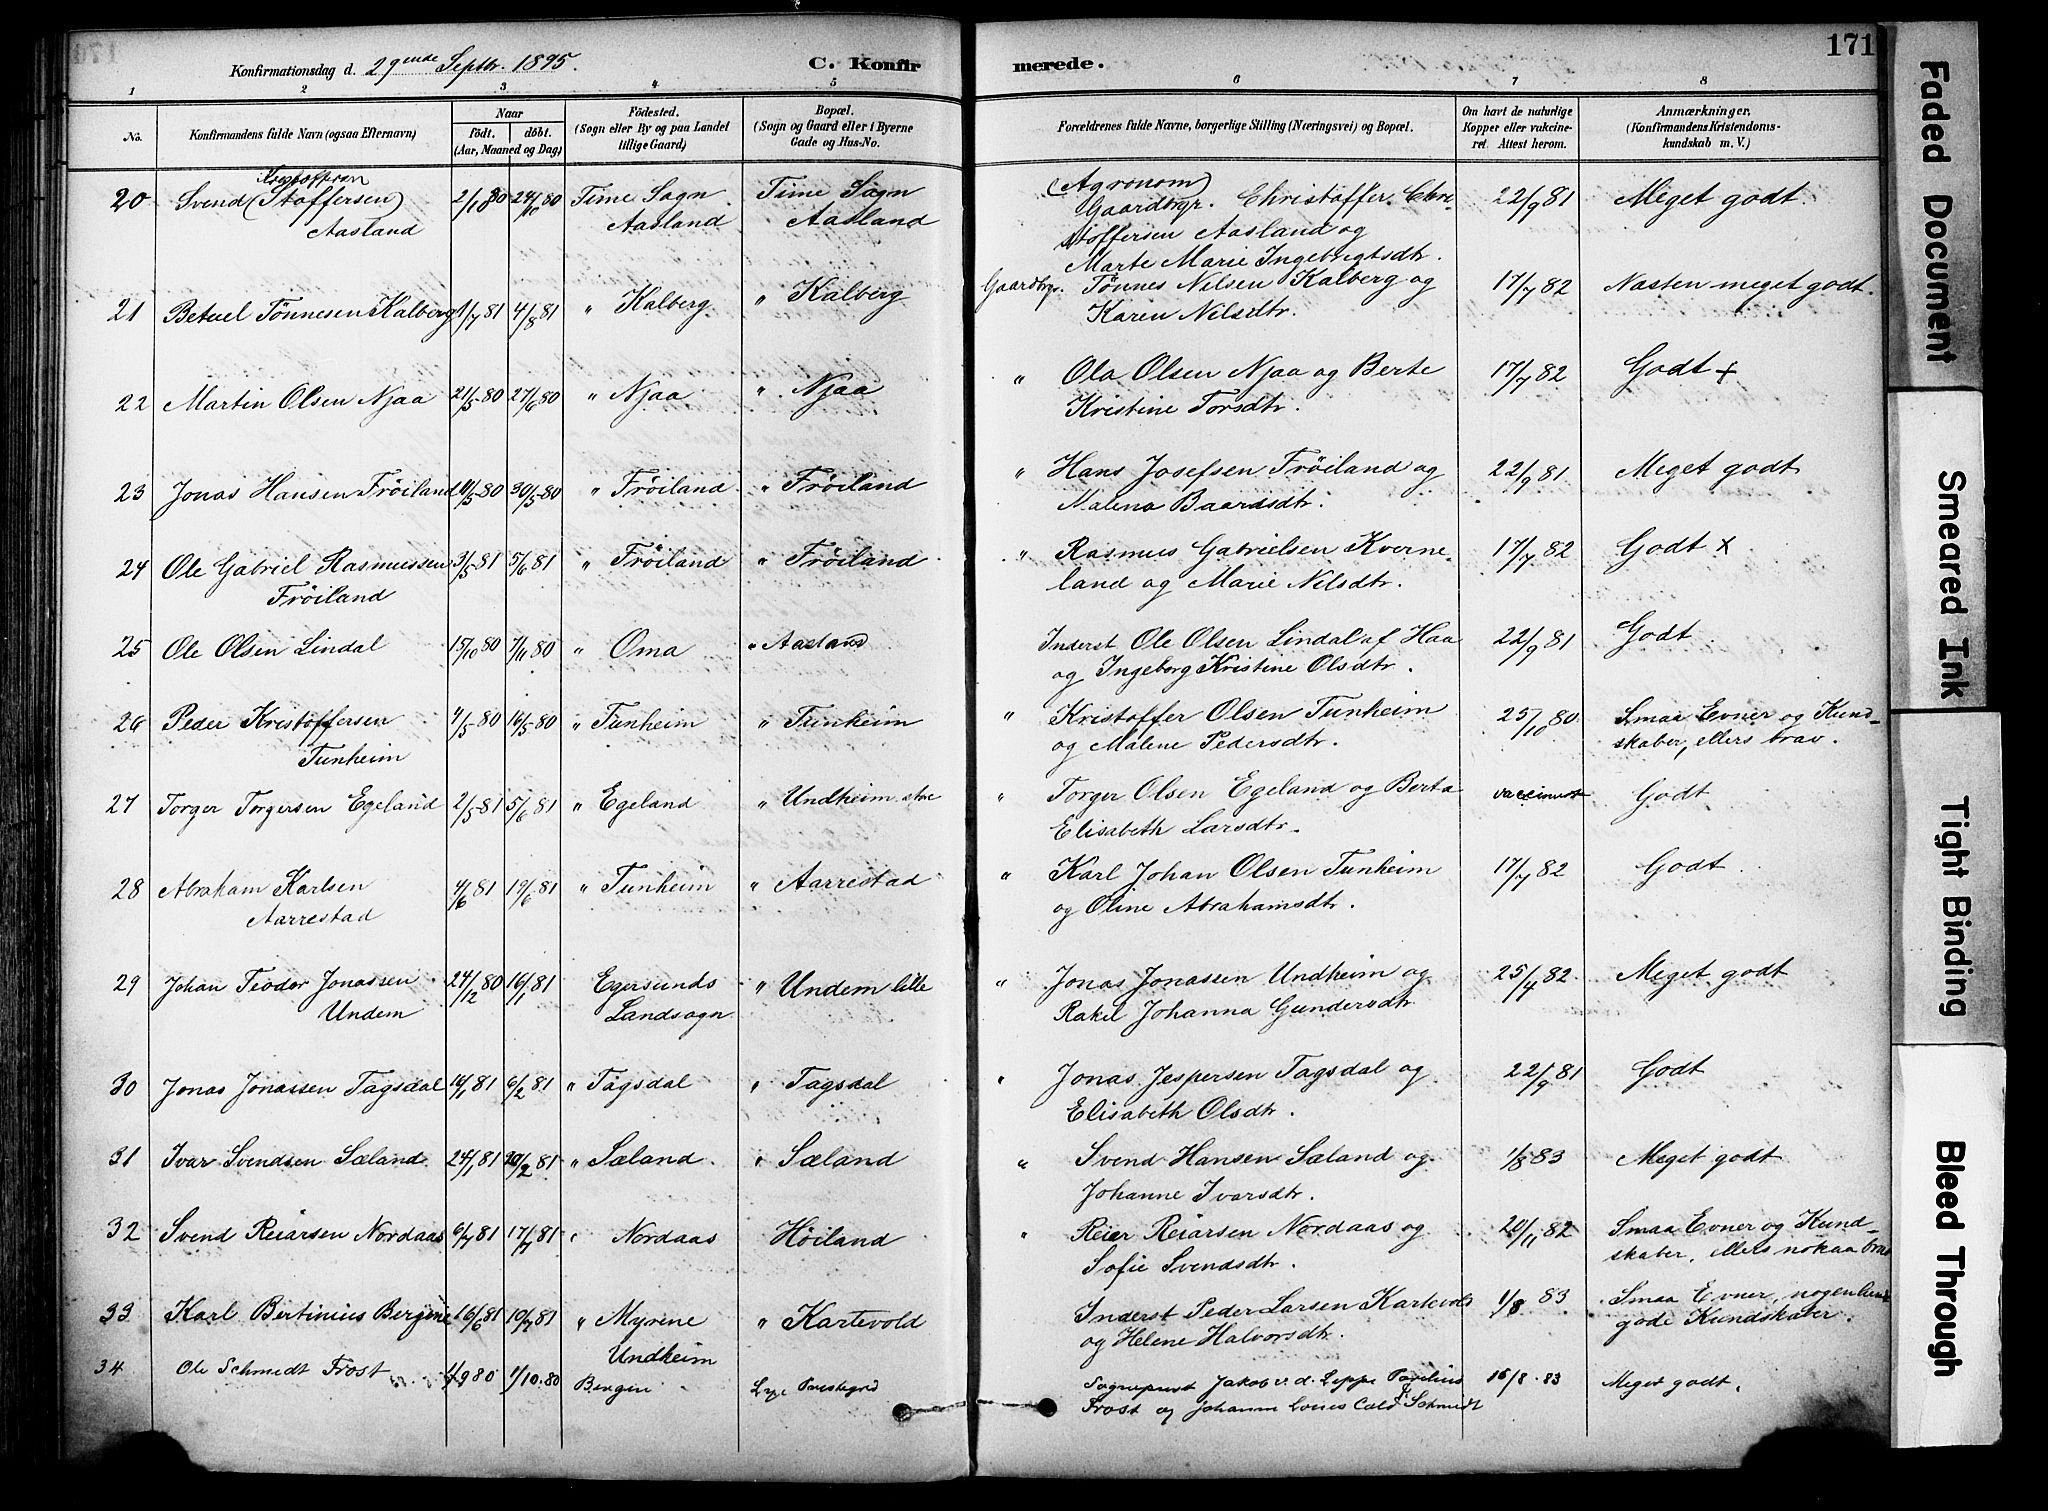 171
Konfirmationsdag d. 29ende Septbr. 1895.
C. Konfir
merede.
1 2 3 4 5 6 7 8
No.
Konfirmandens fulde Navn (ogsaa Efternavn)
Naar
født. døbt.
(Aar, Maaned og Dag)
Födested.
(Sogn eller By og paa Landet
tillige Gaard)
Bopæl.
(Sogn og Gaard eller i Byerne
Gade og Hus-No.
Forældrenes fulde Navne, borgerlige Stilling (Næringsvei) og Bopæl.
Om havt de naturlige
Kopper eller vakcine-
ret. Attest herom.
Anmærkninger,
(Konfirmandens Kristendoms-
kundskab m. V.)
Kristoffersen
20 Svend (Stoffersen) 24/10 80 Time Sogn Time Sogn (Agronom) 22/9 81 Meget godt.
Aasland Aasland Aasland Gaardbrgr. Christoffer Chri-
stoffersen Aasland og
Marte Marie Ingebrigtsdtr.
21 Betuel Tönnesen Kalberg 1/7 81 4/8 81 " Kalberg " Kalberg Gaardbgr. Tønnes Nilsen Kalberg og 17/7 82 Næsten meget godt.
Karen Nilsdtr.
22 Martin Olsen Njaa 21/5 80 27/6 80 " Njaa " Njaa " Ola Olsen Njaa og Berte 17/7 82 Godt +
Kristine Torsdtr.
23 Jonas Hansen Fröiland 11/5 80 30/5 80 " Fröiland " Fröiland " Hans Josefsen Fröiland og 22/9 81 Meget godt
Malena Baardsdtr.
24 Ole Gabriel Rasmussen 3/5 81 5/6 81 " Fröiland " Fröiland " Rasmus Gabrielsen Kverne- 17/7 82 Godt x
Fröiland land og Marie Nilsdtr.
25 Ole Olsen Lindal 15/10 80 7/11 80 " Oma " Aasland Inderst Ole Olsen Lindal af Haa 22/9 81 Godt.
og Ingeborg Kristine Olsdtr.
26 Peder Kristoffersen 4/5 80 16/5 80 " Tunheim " Tunheim " Kristoffer Olsen Tunheim 25/10 80. Smaa Evner og Kund-
Tunheim og Malene Pedersdtr. skaber, ellers brav.
27 Torger Torgersen Egeland 2/5 81 5/6 81 " Egeland " Undheim store " Torger Olsen Egeland og Berta vaccineret Godt
Elisabeth Larsdtr.
28 Abraham Karlsen 4/6 81 19/6 81 " Tunheim " Aarrestad " Karl Johan Olsen Tunheim 17/7 82 Godt.
Aarrestad og Oline Abrahamsdtr.
29 Johan Teodor Jonassen 24/12 80 16/1 81 Egersunds " Undem lille " Jonas Jonassen Undheim og 25/4 82. Meget godt
Undem Landsogn Rakel Johanna Gundersdtr
30 Jonas Jonassen Tagsdal 14/1 81 6/2 81 " Tagsdal " Tagsdal " Jonas Jespersen Tagsdal og 22/9 81 Godt
Elisabeth Olsdtr.
31 Ivar Svendsen Sæland. 24/1 81 20/2 81 " Sæland. " Sæland " Svend Hansen Sæland og 1/8 83 Meget godt
Johanne Ivarsdtr.
32 Svend Reiarsen Nordaas 6/7 81 17/7 81 " Nordaas Höiland " Reier Reiarsen Nordaas og 20/11 82 Smaa Evner og Kund-
Sofie Svendsdtr. skaber, ellers nokaa brav
33 Karl Bertinius Bergine 16/6 81 10/7 81 " Myrene " Kartevold Inderst Peder Larsen Kartevold 1/8 83 Smaa Evner, nogenlunde
Undheim og Helene Halvorsdtr. gode Kundskaber.
34 Ole Schmidt Frost 1/9 80 1/10 80 Bergen Lye Prestegrd Sognepræst Jakob v. d. Lippe 15/8 83 Meget godt.
Frost og Johanne Schmidt
Faded Document
Smeared Ink
Tight Binding
Bleed Through